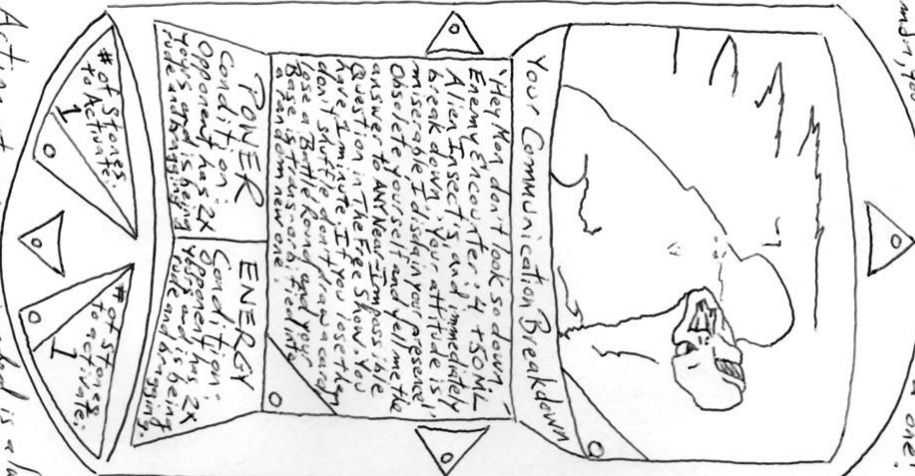 mdir, you
one.
Your Communication Breakdown
"Hey Mon don't look so down.
Enemy Encounter: 4 +50 ML
Alien Insects, and immediately
break down. Your attitude is
miserable I disdain your presence!
Obsolete yourself and yell me the
answer to ANY Near-Impossible
Question in The Fee Show. You
have 1 minute. If you lose they
don't shuffle, don't draw a card,
lose a Battle Round and your
Base is transorbified into
a random new one.
POWER
Condition:
Opponent has 2X
yours and is being
rude and bragging
ENERGY
Condition:
Opponent has 2X
yours and is being
rude and bragging.
# of Stones
to Activate:
1
# of Stones
to activate:
1
is a